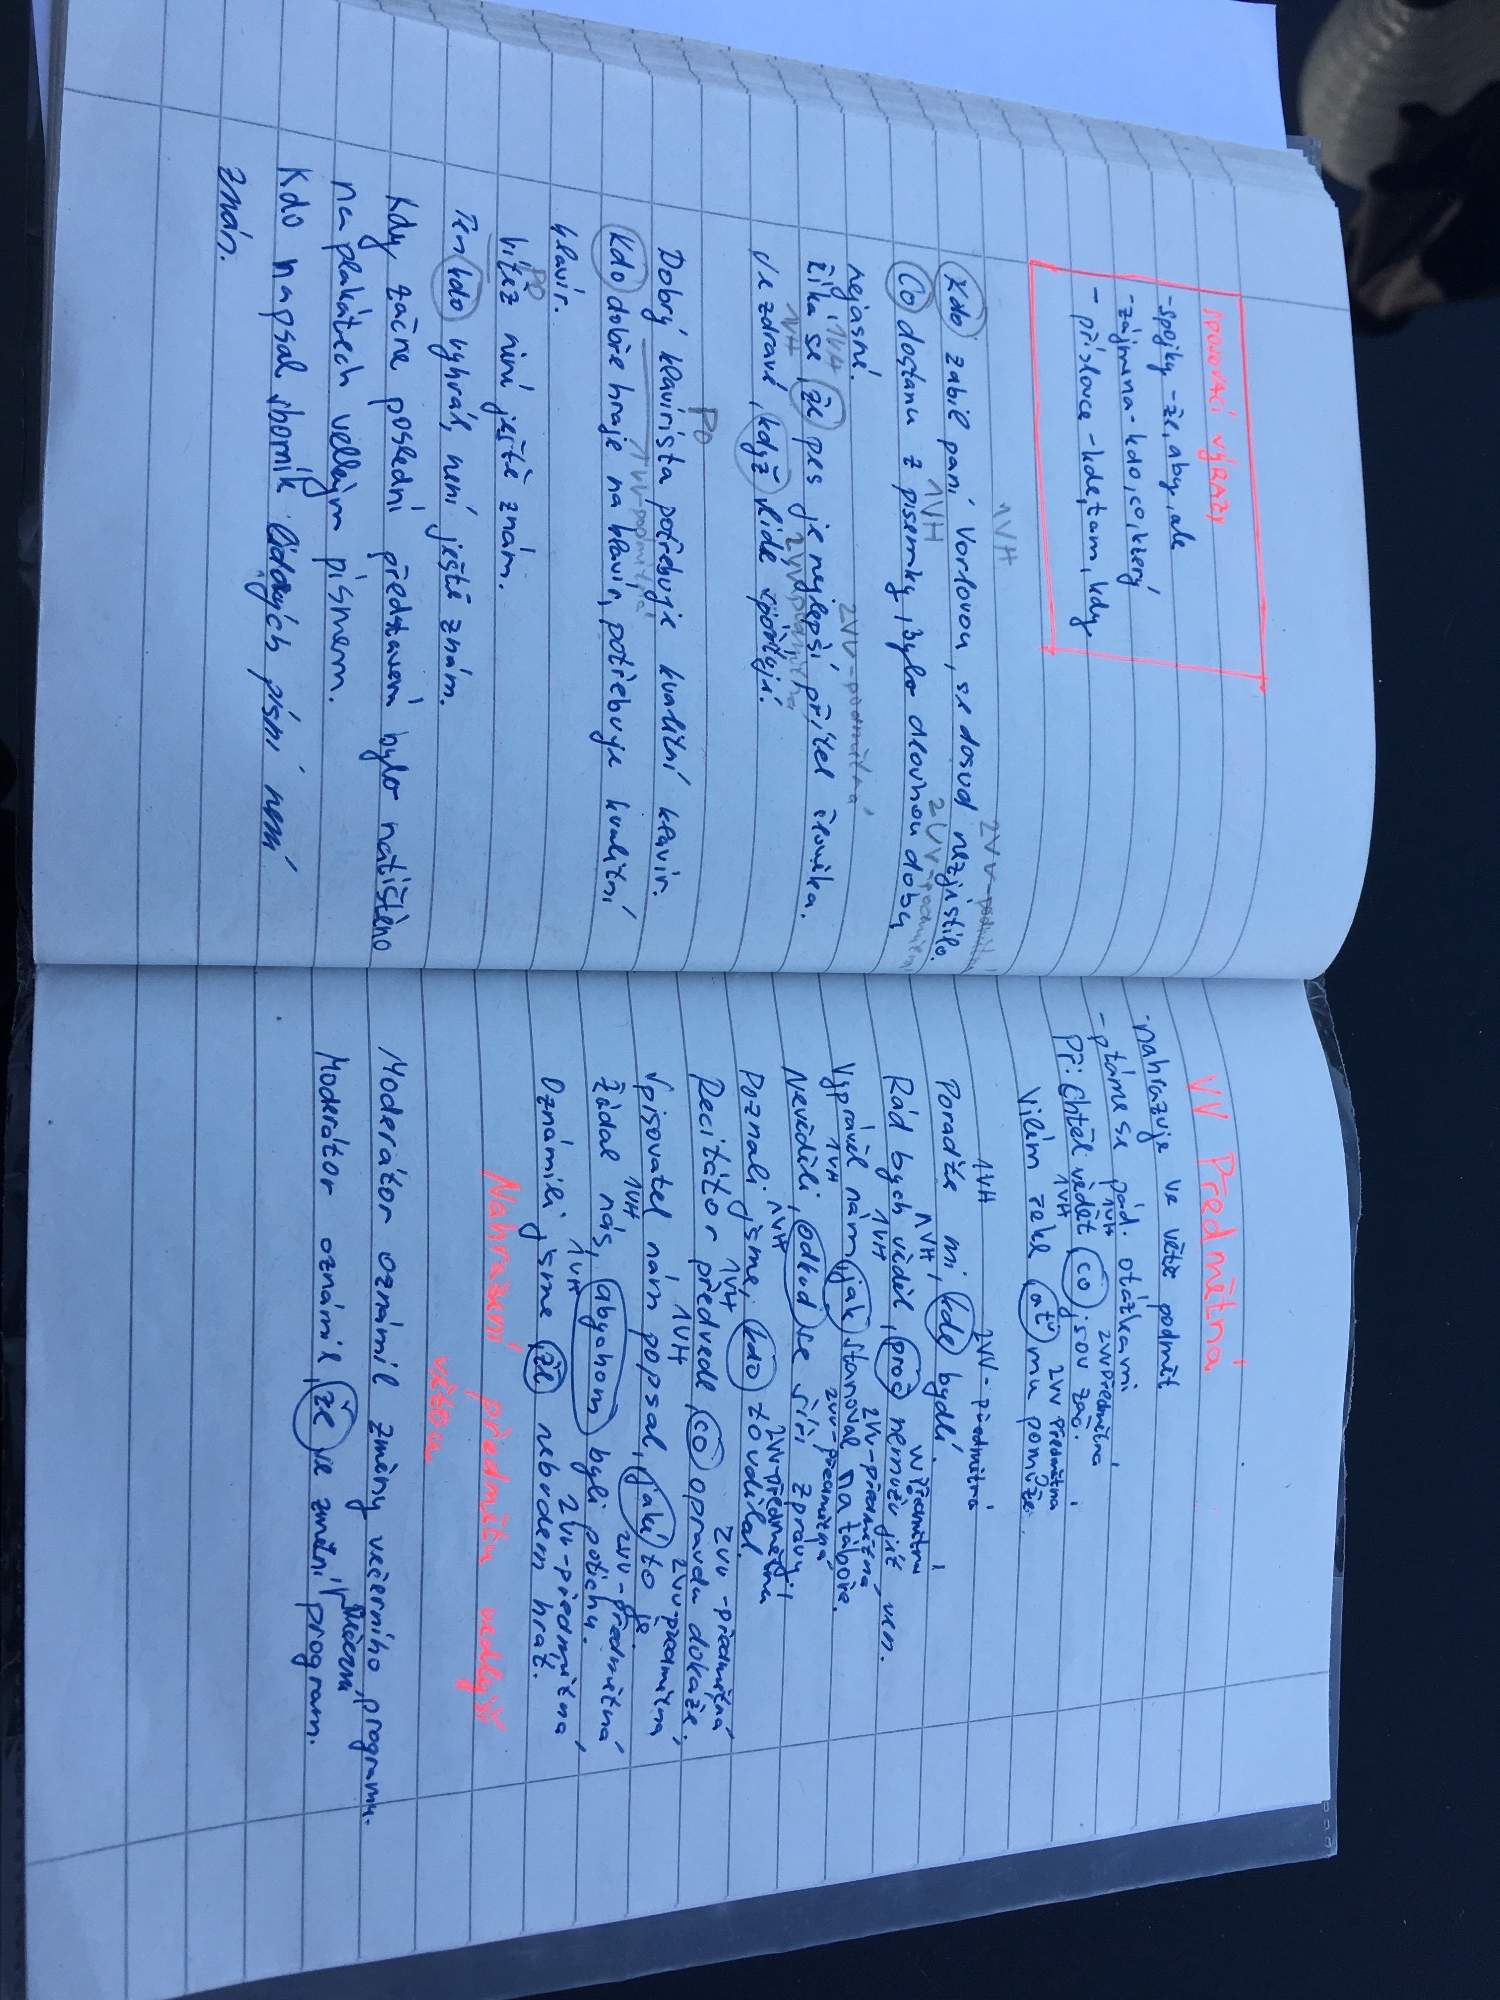 SPOJOVACÍ VÝRAZY
- spojky - že, aby, ale
- zájmena - kdo, co, který
- příslovce - kde, tam, kdy
1VH
2VV - podmětná
Kdo zabil paní Vorlovou, se dosud nezjistilo.
1VH
2VV - podmětná
Co dostanu z písemky, bylo dlouhou dobu
nejasné.
1VH
2VV - podmětná
Říká se, že pes je nejlepší přítel člověka.
1VH
2VV podmětná
Je zdravé, když lidé sportují.
PO
Dobrý klavírista potřebuje kvalitní klavír.
1VV podmětná
Kdo dobře hraje na klavír, potřebuje kvalitní
klavír.
PO
Vítěz není ještě znám.
Ten kdo vyhrál, není ještě znám.
Kdy začne poslední představení bylo natištěno
na plakátech velkým písmem.
Kdo napsal sborník lidových písní není
znán.
VV Předmětná
- nahrazuje ve větě podmět
- ptáme se pád. otázkami
1VH
2VV předmětná
Př: Chtěl vědět, co jsou zač.
1VH
2VV předmětná
Vilém řekl, ať mu pomůže.
1VH
2VV - předmětná
Poraďte mi, kde bydlí.
1VH
VV předmětná
Rád bych věděl, proč nemůžu jít ven.
1VH
2VV - předmětná
Vyprávěl nám, jak stanoval na táboře.
1VH
2VV - předmětná
Nevěděli, odkud se šíří zprávy.
1VH
2VV - předmětná
Poznali jsme, kdo to udělal.
1VH
2VV - předmětná
Recitátor předvedl, co opravdu dokáže.
1VH
2VV - předmětná
Spisovatel nám popsal, jaké to je.
1VH
2VV - předmětná
Žádal nás, abychom byli potichu.
1VH
2VV - předmětná
Oznámili jsme, že nebudem hrát.
Nahrazení předmětu vedlejší
větou
Moderátor oznámil změny večerního programu.
Moderátor oznámil, že se změní večerní program.